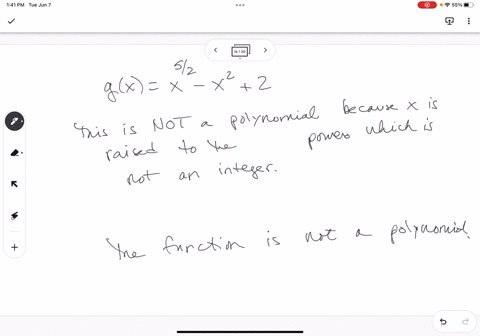 1:41 PM Tue Jun 7
55%
g(x) = x^{5/2} - x^2 + 2
This is NOT a polynomial because x is
raised to the power which is
not an integer.
The function is not a polynomial.